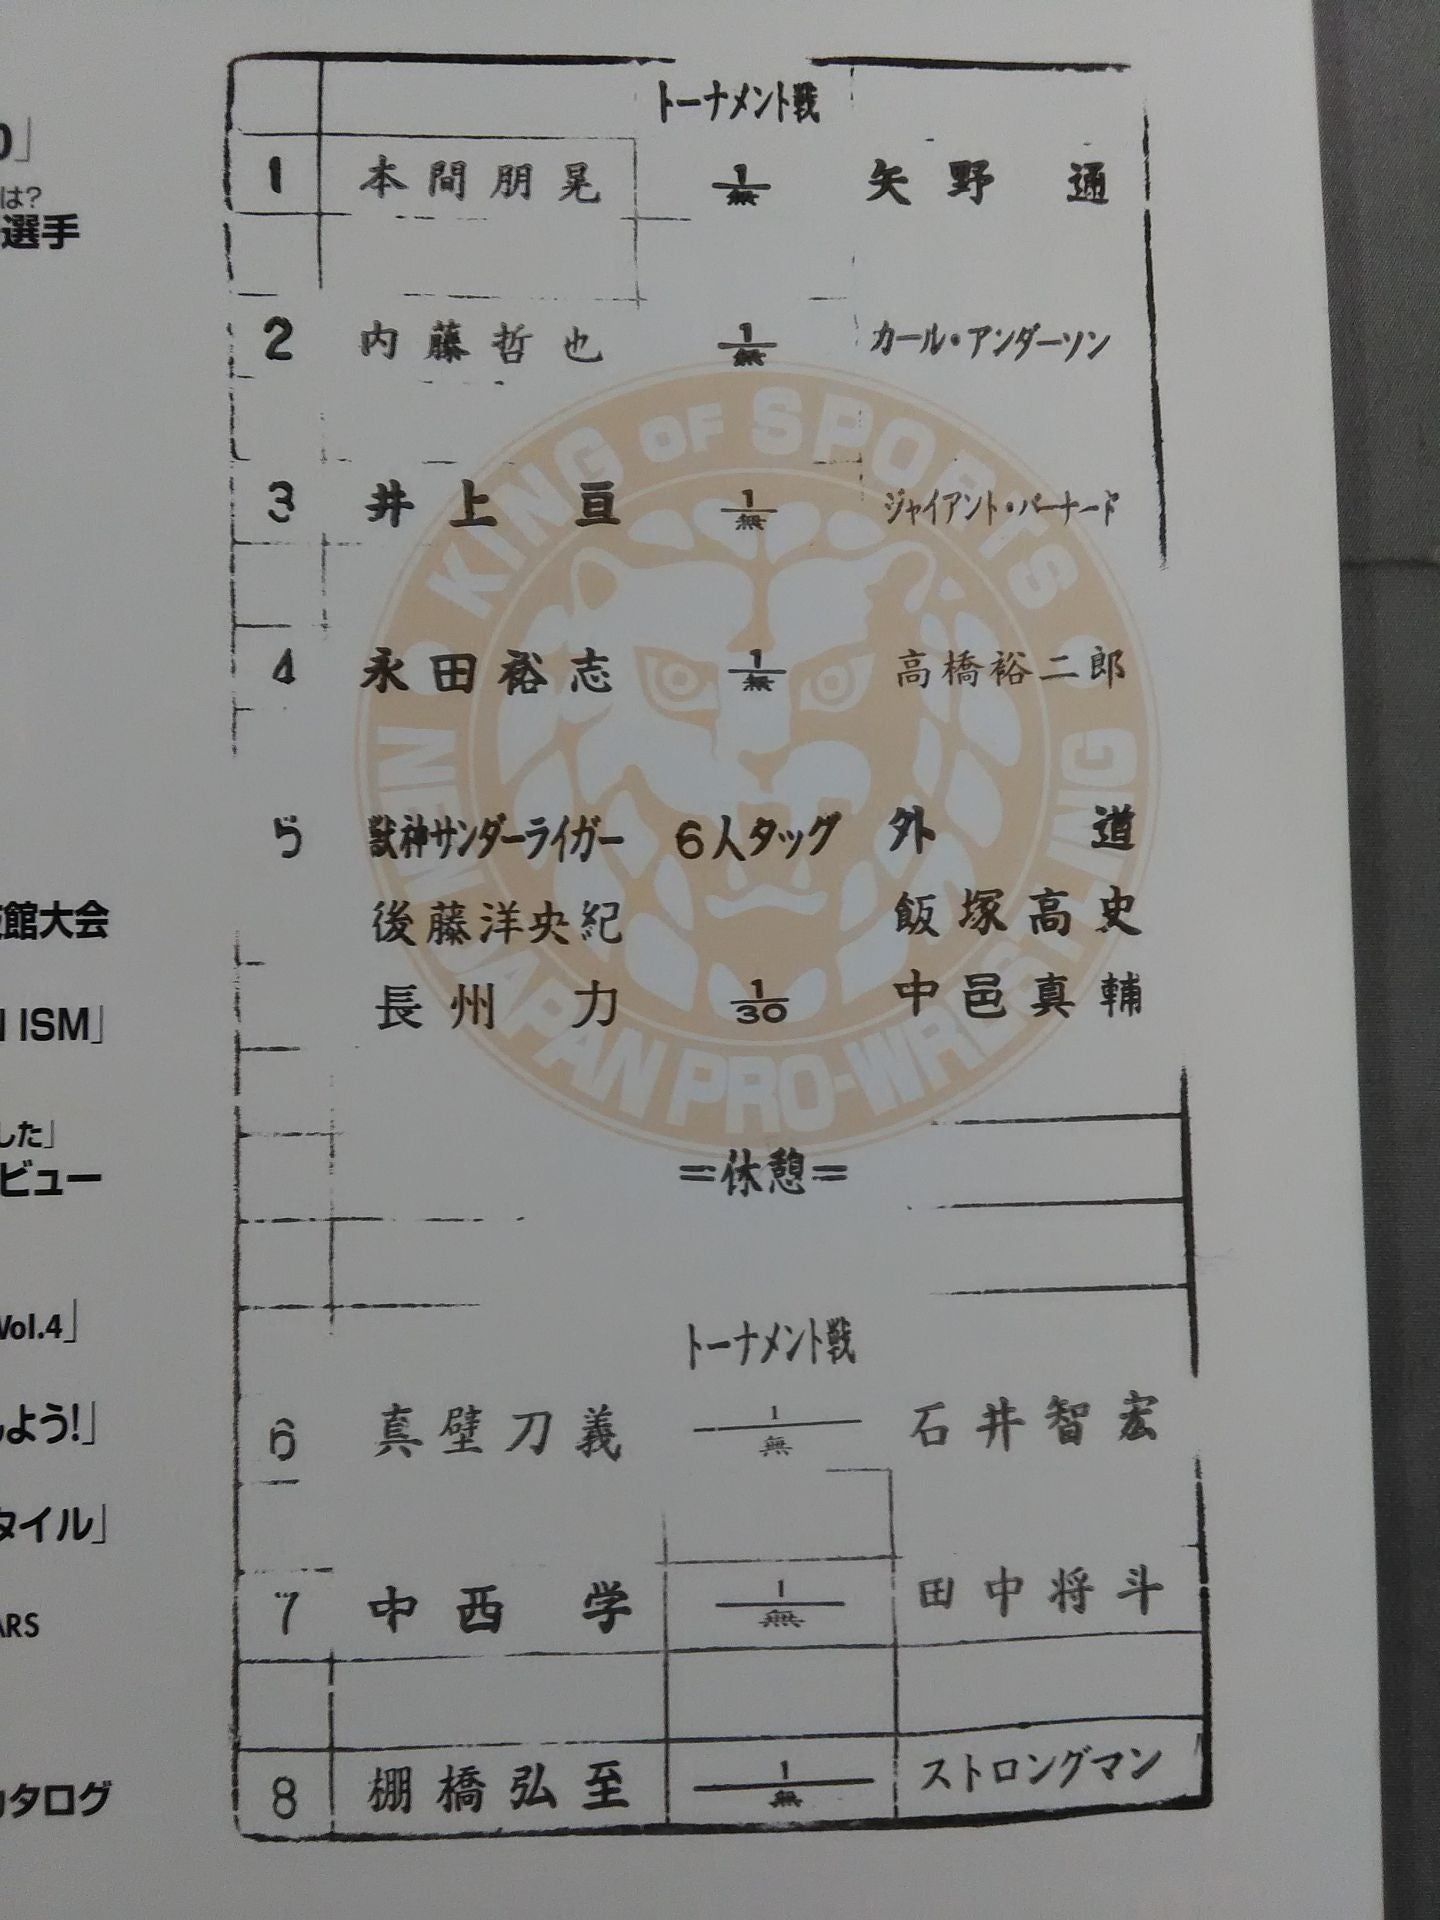 トーナメント戦
1 本間朋晃 1/無 矢野通
2 内藤哲也 1/無 カール・アンダーソン
3 井上亘 1/無 ジャイアント・バーナード
4 永田裕志 1/無 高橋裕二郎
5 獣神サンダーライガー 6人タッグ 外道
後藤洋央紀 飯塚高史
長州力 1/30 中邑真輔
=休憩=
トーナメント戦
6 真壁刀義 1/無 石井智宏
7 中西学 1/無 田中将斗
8 棚橋弘至 1/無 ストロングマン
KING OF SPORTS
NEW JAPAN PRO-WRESTLING
」
は?
選手
館大会
ISM」
した」
ビュー
Vol.4」
よう!」
タイル」
ARS
カタログ